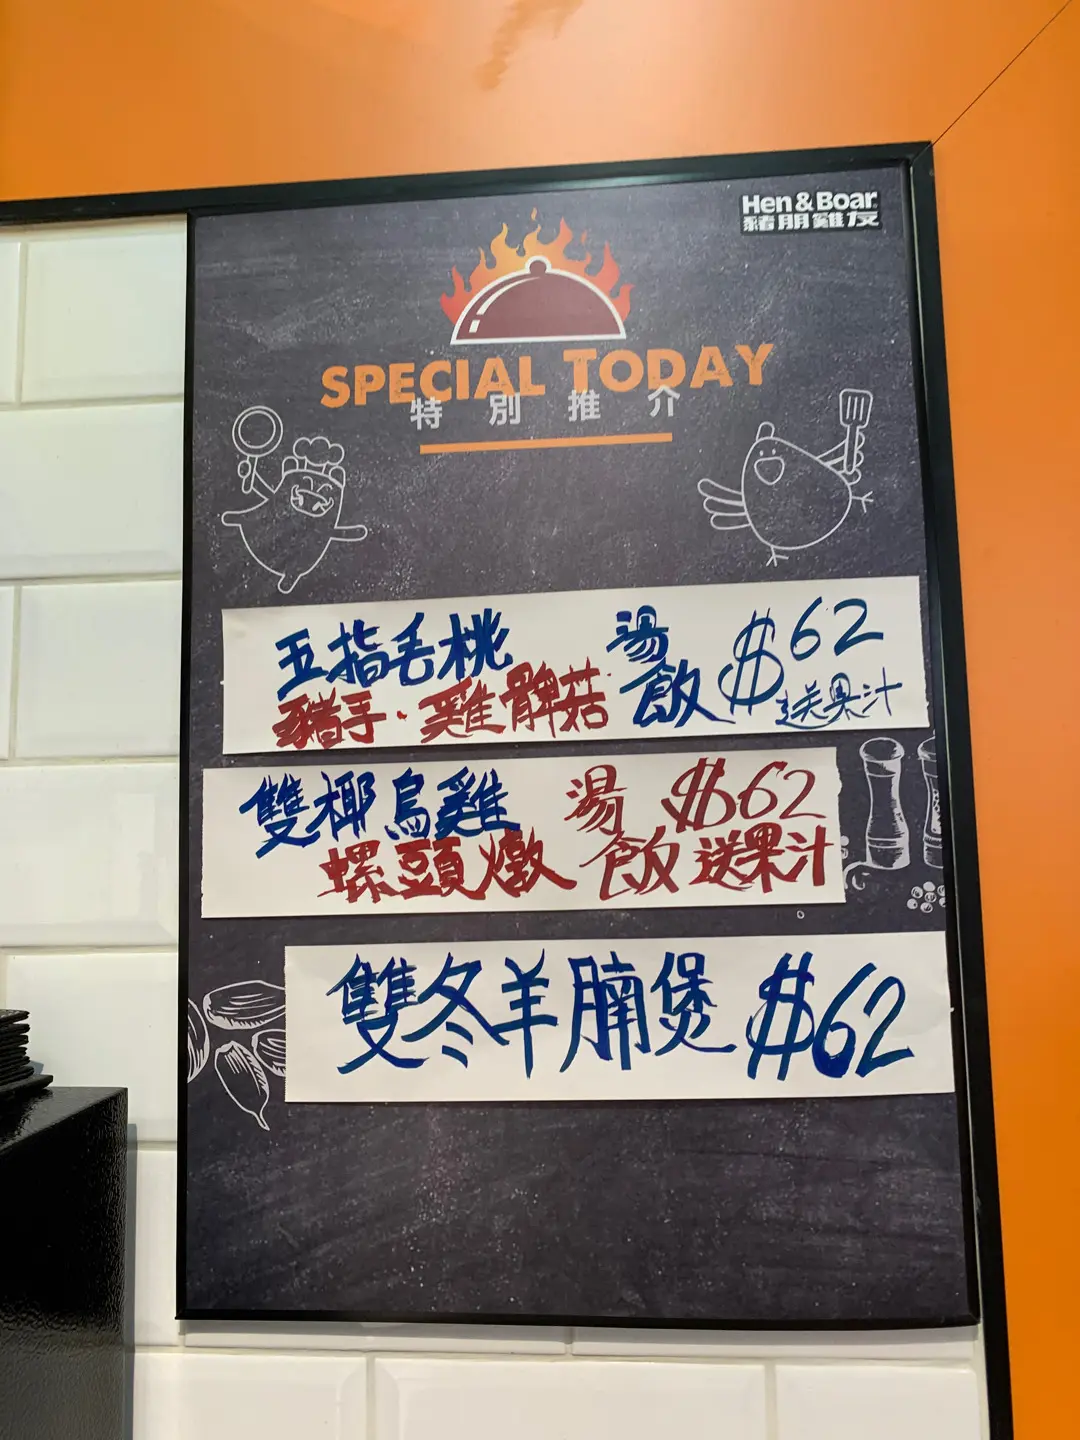 Hen & Boar
豬朋雞友
SPECIAL TODAY
特別推介
五指毛桃 湯 $62
豬手·雞髀菇 飯 送果汁
雙椰烏雞 湯 $62
螺頭燉 飯 送果汁
雙冬羊腩煲 $62